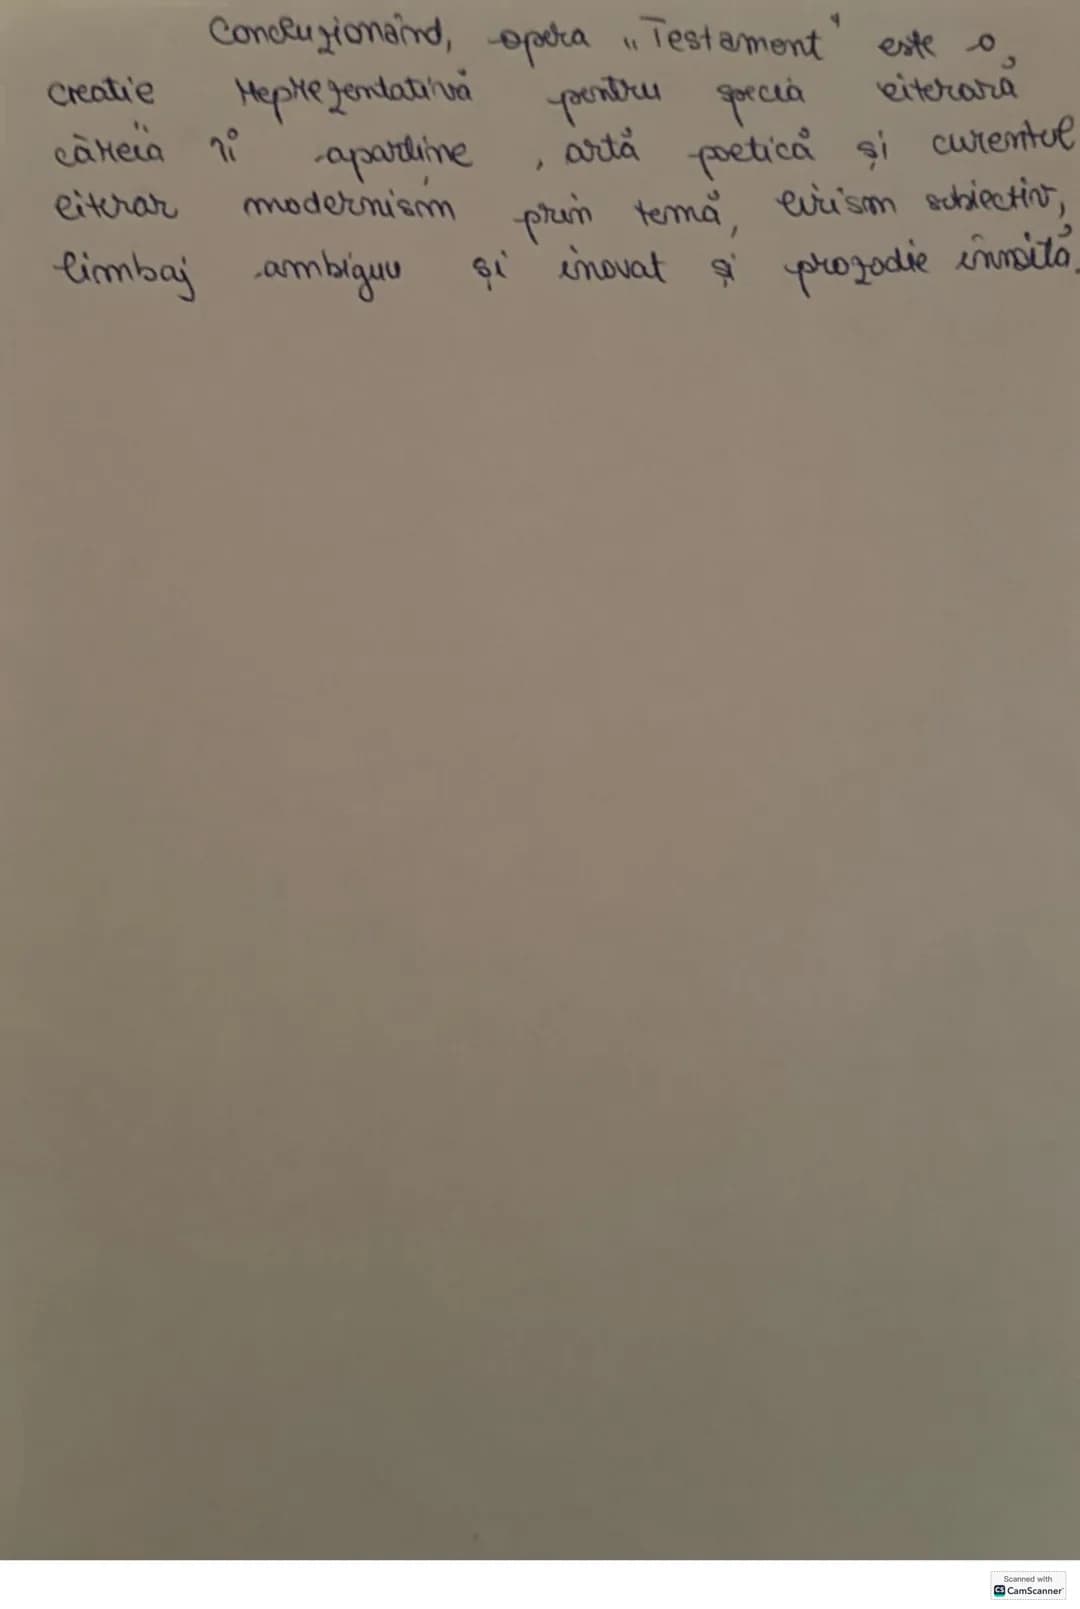 Concluzionând, opera „Testament" este o
creatie reprezentativă pentru specia literară
căreia îi aparține, artă poetică și curentul
literar modernism prin temă, lirism subiectiv,
limbaj ambiguu și inovat și prozodie înnoită.
Scanned with
CS CamScanner